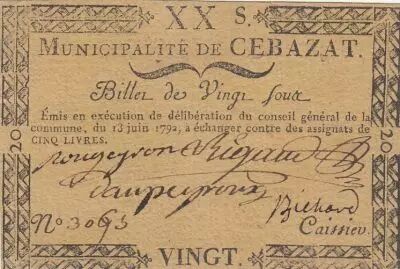 XX S.
MUNICIPALITÉ DE CEBAZAT.
Billet de Vingt sous
Émis en exécution de délibération du conseil général de la
commune, du 13 juin 1792, à échanger contre des assignats de
CINQ LIVRES.
20
20
Rigaud
No 3095
Bichard
Caissier
VINGT.